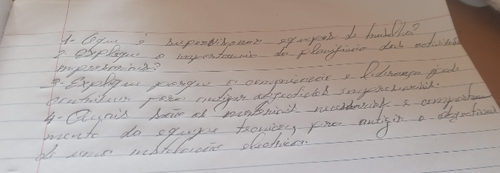 1- O que é supervisionar equipas de trabalho?
2- Explique a importância do planificar das actividades
empresariais?
3- Explique porque a comunicação e liderança pode
contribuir para atingir objectivos empresariais.
4- Quais são os materiais necessários e comporta
mento da equipa técnica, para atingir o objectivo
de uma instalação eléctrica.